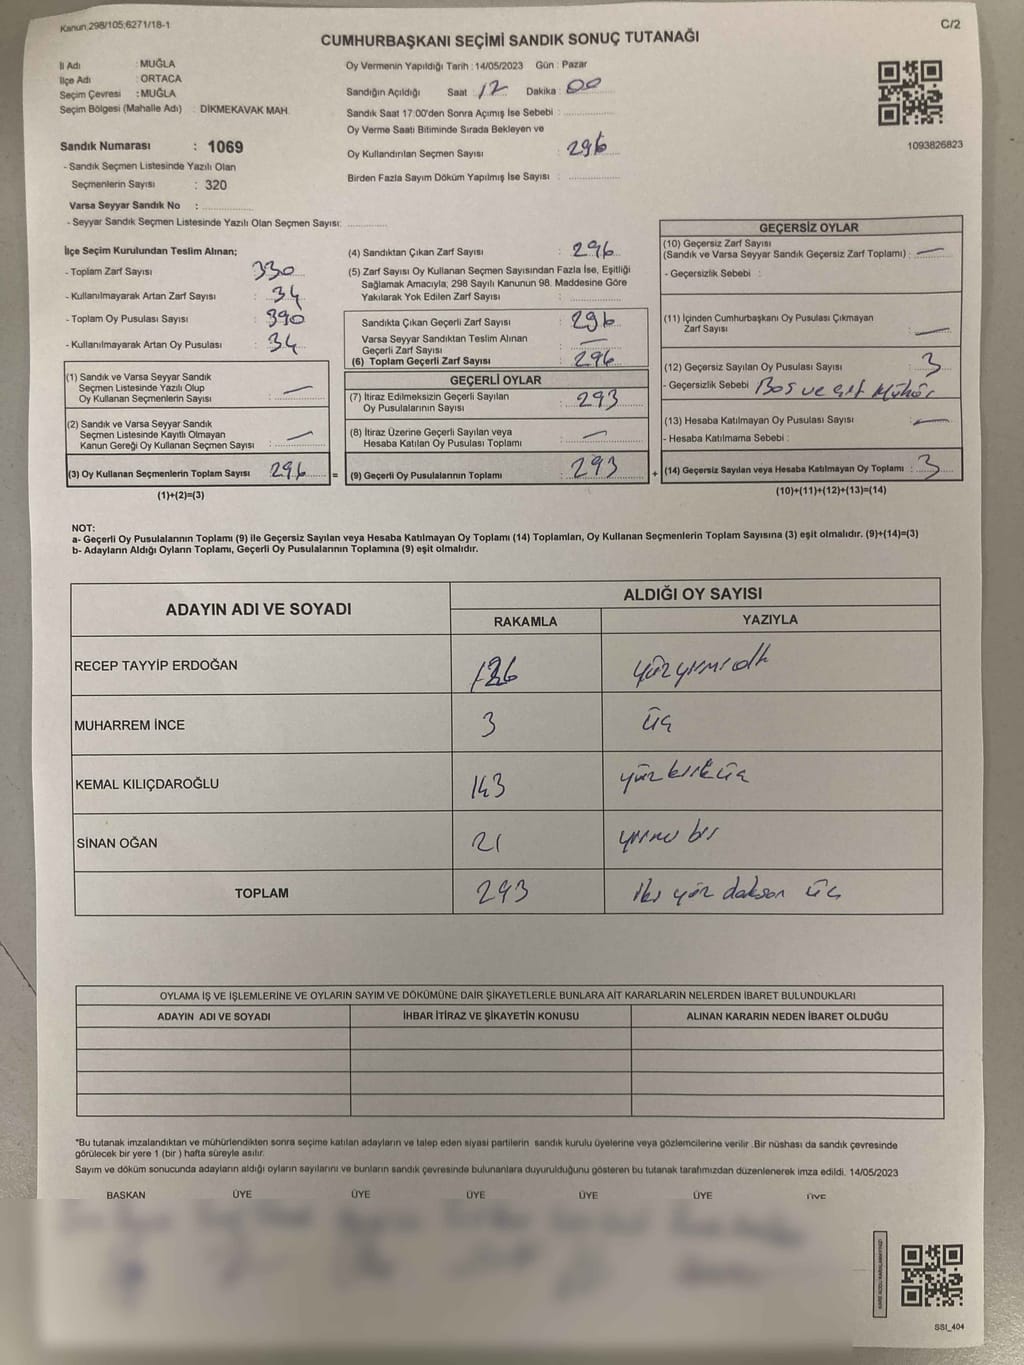 Kanun;298/105;6271/18-1
C/2
CUMHURBAŞKANI SEÇİMİ SANDIK SONUÇ TUTANAĞI
İl Adı : MUĞLA
İlçe Adı : ORTACA
Seçim Çevresi : MUĞLA
Seçim Bölgesi (Mahalle Adı) : DİKMEKAVAK MAH.
Oy Vermenin Yapıldığı Tarih : 14/05/2023 Gün : Pazar
Sandığın Açıldığı Saat : 12 Dakika : 00
Sandık Saat 17:00'den Sonra Açımış İse Sebebi :
Oy Verme Saati Bitiminde Sırada Bekleyen ve
Oy Kullandırılan Seçmen Sayısı : 296
Birden Fazla Sayım Döküm Yapılmış İse Sayısı :
1093826823
Sandık Numarası : 1069
- Sandık Seçmen Listesinde Yazılı Olan
Seçmenlerin Sayısı : 320
Varsa Seyyar Sandık No :
- Seyyar Sandık Seçmen Listesinde Yazılı Olan Seçmen Sayısı:
İlçe Seçim Kurulundan Teslim Alınan;
- Toplam Zarf Sayısı : 330
- Kullanılmayarak Artan Zarf Sayısı : 34
- Toplam Oy Pusulası Sayısı : 390
- Kullanılmayarak Artan Oy Pusulası : 34
(1) Sandık ve Varsa Seyyar Sandık
Seçmen Listesinde Yazılı Olup
Oy Kullanan Seçmenlerin Sayısı : —
(2) Sandık ve Varsa Seyyar Sandık
Seçmen Listesinde Kayıtlı Olmayan
Kanun Gereği Oy Kullanan Seçmen Sayısı : —
(3) Oy Kullanan Seçmenlerin Toplam Sayısı 296 =
(1)+(2)=(3)
(4) Sandıktan Çıkan Zarf Sayısı : 296
(5) Zarf Sayısı Oy Kullanan Seçmen Sayısından Fazla İse, Eşitliği
Sağlamak Amacıyla; 298 Sayılı Kanunun 98. Maddesine Göre
Yakılarak Yok Edilen Zarf Sayısı :
Sandıkta Çıkan Geçerli Zarf Sayısı : 296
Varsa Seyyar Sandıktan Teslim Alınan
Geçerli Zarf Sayısı : —
(6) Toplam Geçerli Zarf Sayısı : 296
GEÇERLİ OYLAR
(7) İtiraz Edilmeksizin Geçerli Sayılan
Oy Pusulalarının Sayısı : 293
(8) İtiraz Üzerine Geçerli Sayılan veya
Hesaba Katılan Oy Pusulası Toplamı : —
(9) Geçerli Oy Pusulalarının Toplamı : 293 +
GEÇERSİZ OYLAR
(10) Geçersiz Zarf Sayısı
(Sandık ve Varsa Seyyar Sandık Geçersiz Zarf Toplamı) : —
- Geçersizlik Sebebi :
(11) İçinden Cumhurbaşkanı Oy Pusulası Çıkmayan
Zarf Sayısı : —
(12) Geçersiz Sayılan Oy Pusulası Sayısı : 3
- Geçersizlik Sebebi : Boş ve çift Mühür
(13) Hesaba Katılmayan Oy Pusulası Sayısı : —
- Hesaba Katılmama Sebebi :
(14) Geçersiz Sayılan veya Hesaba Katılmayan Oy Toplamı : 3
(10)+(11)+(12)+(13)=(14)
NOT:
a- Geçerli Oy Pusulalarının Toplamı (9) ile Geçersiz Sayılan veya Hesaba Katılmayan Oy Toplamı (14) Toplamları, Oy Kullanan Seçmenlerin Toplam Sayısına (3) eşit olmalıdır. (9)+(14)=(3)
b- Adayların Aldığı Oyların Toplamı, Geçerli Oy Pusulalarının Toplamına (9) eşit olmalıdır.
ADAYIN ADI VE SOYADI
ALDIĞI OY SAYISI
RAKAMLA YAZIYLA
RECEP TAYYİP ERDOĞAN 126 yüz yirmi altı
MUHARREM İNCE 3 üç
KEMAL KILIÇDAROĞLU 143 yüz kırk üç
SİNAN OĞAN 21 yirmi bir
TOPLAM 293 iki yüz doksan üç
OYLAMA İŞ VE İŞLEMLERİNE VE OYLARIN SAYIM VE DÖKÜMÜNE DAİR ŞİKAYETLERLE BUNLARA AİT KARARLARIN NELERDEN İBARET BULUNDUKLARI
ADAYIN ADI VE SOYADI İHBAR İTİRAZ VE ŞİKAYETİN KONUSU ALINAN KARARIN NEDEN İBARET OLDUĞU
*Bu tutanak imzalandıktan ve mühürlendikten sonra seçime katılan adayların ve talep eden siyasi partilerin sandık kurulu üyelerine veya gözlemcilerine verilir .Bir nüshası da sandık çevresinde
görülecek bir yere 1 (bir ) hafta süreyle asılır.
Sayım ve döküm sonucunda adayların aldığı oyların sayılarını ve bunların sandık çevresinde bulunanlara duyurulduğunu gösteren bu tutanak tarafımızdan düzenlenerek imza edildi. 14/05/2023
BAŞKAN ÜYE ÜYE ÜYE ÜYE ÜYE ÜYE
SSI_404